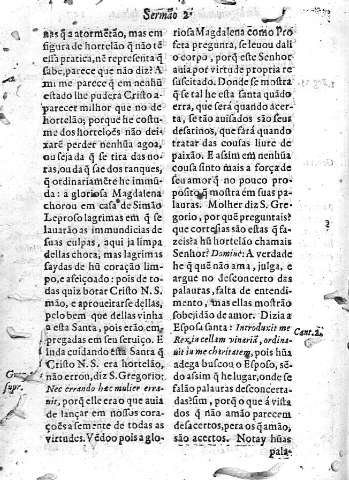 Sermão 2.
nas q̃ a atormẽtão, mas em
figura de hortelão q̃ não tẽ
essa pratica, nẽ representa q̃
sabe, parece que não diz? A
mi me parece q̃ em nenhũ
estado lhe pudera Cristo a-
parecer milhor que no de
hortelão; porque he costu-
me dos hortelões não dei-
xarẽ perder nenhũa agoa,
ou seja da q̃ se tira das no-
ras, ou da q̃ sae dos tanques,
q̃ ordinariamẽte he immũ-
da: a gloriosa Magdalena
chorou em casa de Simão
Leproso lagrimas em q̃ se
lauarão as immundicias de
suas culpas, aqui ja limpa
dellas chora, mas lagrimas
saydas de hũ coração lim-
po, e afeiçoado: pois de to-
das quiz botar Cristo N. S.
mão, e aproueitarse dellas,
pelo bem que dellas vinha
a esta Santa, pois erão em-
pregadas em seu seruiço. E
inda cuidando esta Santa q̃
Cristo N. S. era hortelão,
não errou, diz S. Gregorio:
Nec errando hæc mulier erra-
uit, porq̃ elle era o que auia
de lançar em nossos cora-
ções a semente de todas as
virtudes. Vẽdoo pois a glo-
supr.
riosa Magdalena como Pro
feta pregunta, se leuou dali
o corpo, porq̃ este Senhor
auia por virtude propria re
suscitado. Donde se mostra
q̃ se tal he esta santa quãdo
erra, que será quando acer-
ta, se tão auisados são seus
desatinos, que será quando
tratar das cousas liure de
paixão. E assim em nenhũa
cousa sinto mais a força de
seu amor q̃ no pouco pro-
posito q̃ mostra em suas pa-
lauras. Molher diz S. Gre-
gorio, por que preguntais?
que cortesias são estas q̃ fa-
zeis? a hũ hortelão chamais
Senhor? Dominè: A verdade
he q̃ que não ama, julga, e
argue no desconcerto das
palauras, falta de entendi-
mento, mas ellas mostrão
sobejidão de amor. Dizia a
Esposa santa: Introduxit me
Rex in cellam vinariã, ordina-
uit in me charitatem, pois hũa
adega buscou o Esposo, sẽ-
do assim q̃ he lugar, onde se
falão palauras desconcerta-
das? sim, porq̃ o que á vista
dos q̃ não amão parecem
desacertos, pera os q̃ amão,
são acertos. Notay hũas
Cant. 2.
pala-